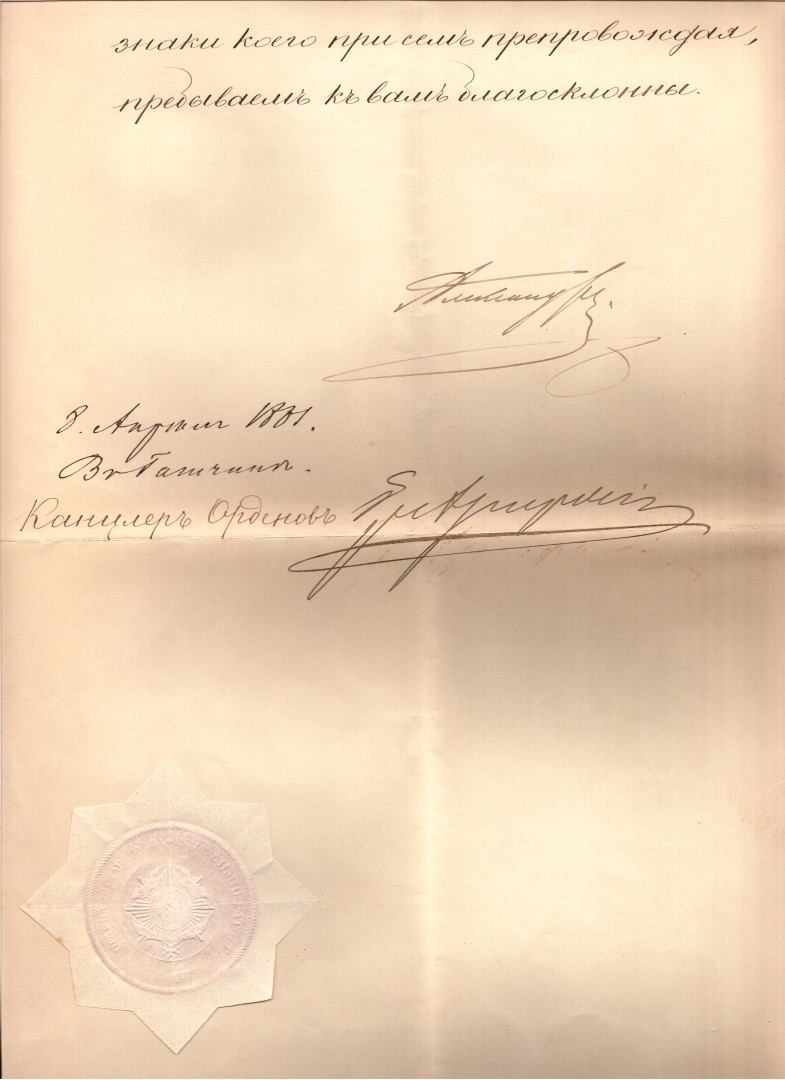 знаки коего при семъ препровождая,
пребываемъ къ вамъ благосклонны.
Александръ.
8. Апрѣля 1881.
Въ Гатчинѣ.
Канцлеръ Орденовъ